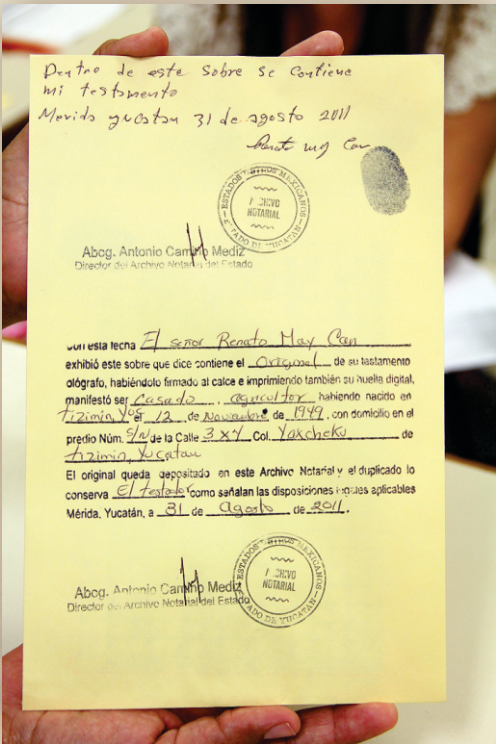 Dentro de este sobre se contiene
mi testamento
Merida yucatan 31 de agosto 2011
ESTADOS UNIDOS MEXICANOS
ARCHIVO
NOTARIAL
ESTADO DE YUCATAN
Abog. Antonio Camino Mediz
Director del Archivo Notarial del Estado
Con esta fecha El señor Renato May Can
exhibió este sobre que dice contiene el Original de su testamento
ológrafo, habiéndolo firmado al calce e imprimiendo también su huella digital,
manifestó ser Casado, agricultor habiendo nacido en
tizimin, Yuc el 12 de Noviembre de 1949, con domicilio en el
predio Núm. S/N de la Calle 3 x 4 Col. Yaxcheku de
tizimin, Yucatan
El original queda depositado en este Archivo Notarial y el duplicado lo
conserva El testador como señalan las disposiciones legales aplicables
Mérida, Yucatán, a 31 de agosto de 2011.
ESTADOS UNIDOS MEXICANOS
ARCHIVO
NOTARIAL
ESTADO DE YUCATAN
Abog. Antonio Camino Mediz
Director del Archivo Notarial del Estado